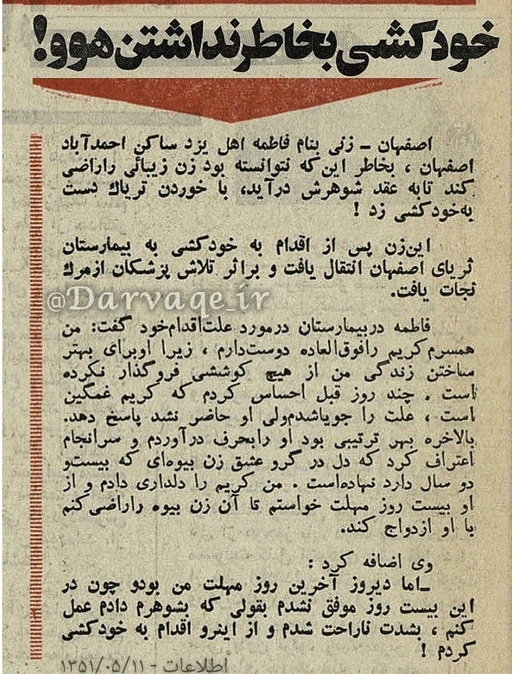 خودکشی بخاطر نداشتن هوو!
اصفهان - زنی بنام فاطمه اهل یزد ساکن احمدآباد
اصفهان ، بخاطر این که نتوانسته بود زن زیبائی راراضی
کند تابه عقد شوهرش درآید، با خوردن تریاك دست
به‌خودکشی زد !
این‌زن پس از اقدام به خودکشی به بیمارستان
ثریای اصفهان انتقال یافت و براثر تلاش پزشکان ازمرگ
نجات یافت.
@Darvaqe_ir
فاطمه دربیمارستان درمورد علت‌اقدام‌خود گفت: من
همسرم‌کریم رافوق‌العاده دوست‌دارم ، زیرا اوبرای بهتر
ساختن زندگی من از هیچ کوششی فروگذار نکرده
است . چند روز قبل احساس کردم که کریم غمگین
است ، علت را جویاشدم‌ولی او حاضر نشد پاسخ دهد.
بالاخره بهر ترتیبی بود او رابحرف درآوردم و سرانجام
اعتراف کرد که دل در گرو عشق زن بیوه‌ای که بیست‌و
دو سال دارد نهاده‌است . من کریم را دلداری دادم و از
او بیست روز مهلت خواستم تا آن زن بیوه راراضی‌کنم
با او ازدواج کند.
وی اضافه کرد :
ـاما دیروز آخرین روز مهلت من بودو چون در
این بیست روز موفق نشدم بقولی که بشوهرم دادم عمل
کنم ، بشدت ناراحت شدم و از اینرو اقدام به خودکشی
کردم !
اطلاعات - ۱۳۵۱/۰۵/۱۱